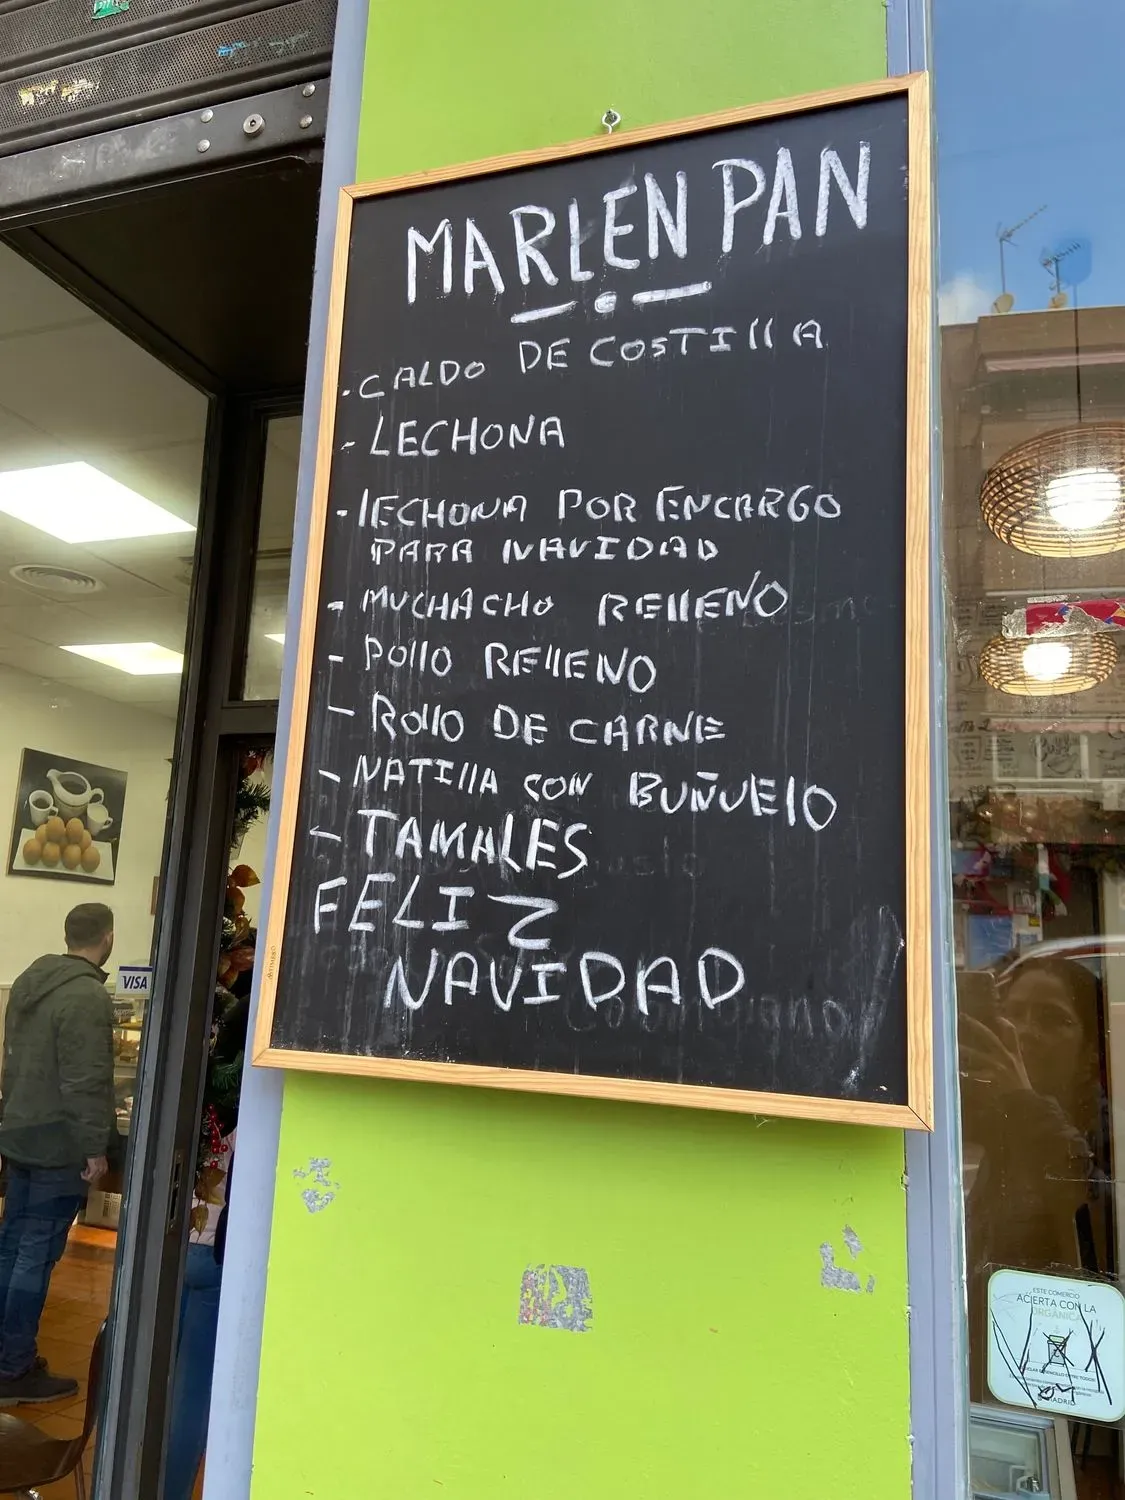 MARLEN PAN
- CALDO DE COSTIllA
- LECHONA
- lECHONA POR ENCARGO
PARA NAVIDAD
- MUCHACHO REllENO
- POllO REllENO
- ROllO DE CARNE
- NATIllA CON BUÑUElO
- TAMALES
FELIZ
NAVIDAD
VISA
ESTE COMERCIO
ACIERTA CON LA
ORGÁNICA
MADRID